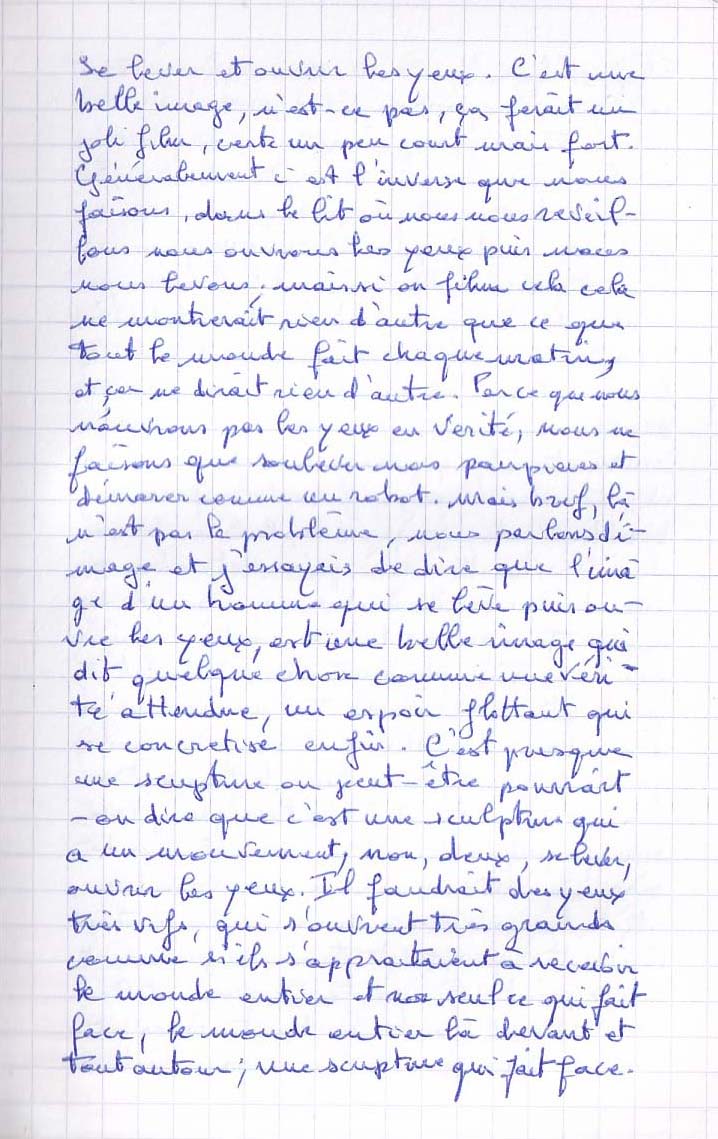 Se lever et ouvrir les yeux. C'est une
belle image, n'est-ce pas, ça ferait un
joli film, certe un peu court mais fort.
Généralement c'est l'inverse que nous
faisons, dans le lit où nous nous réveil-
lons nous ouvrons les yeux puis nous
nous levons; mais si on filme cela cela
ne montrerait rien d'autre que ce que
tout le monde fait chaque matin,
et ça ne dirait rien d'autre. Parce que nous
n'ouvrons pas les yeux en vérité, nous ne
faisons que soulever nos paupières et
démarer comme un robot. Mais bref, là
n'est pas le problème, nous parlons d'i-
mage et j'essayais de dire que l'ima
ge d'un homme qui se lève puis ou-
vre les yeux, est une belle image qui
dit quelque chose comme une véri-
té attendue, un espoir flottant qui
se concretise enfin. C'est presque
une scupture ou peut-être pourrait
-on dire que c'est une sculpture qui
a un mouvement, non, deux, se lever,
ouvrir les yeux. Il faudrait des yeux
très vifs, qui s'ouvrent très grands
comme s'ils s'apprêtaient à recevoir
le monde entier et non seul ce qui fait
face, le monde entier là devant et
tout autour; une scupture qui fait face.